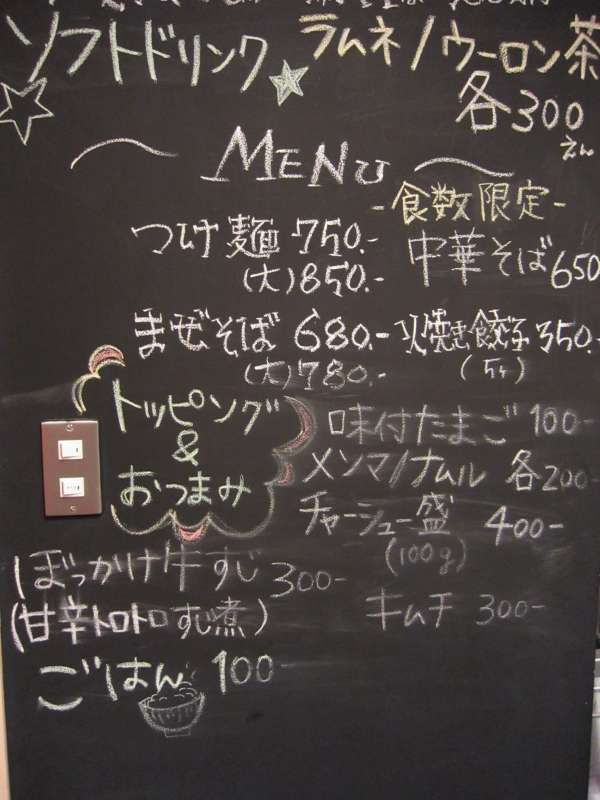 ソフトドリンク ラムネ/ウーロン茶
各300
えん
MENU
-食数限定-
つけ麺 750.- 中華そば 650
(大)850.-
まぜそば 680.- 火焼き餃子 350.-
(大)780.- (5ケ)
トッピング
&
おつまみ
味付たまご 100-
メンマ/ナムル 各200-
チャーシュー盛 400-
(100g)
ぼっかけ牛すじ 300-
(甘辛トロトロすじ煮)
キムチ 300-
ごはん 100-